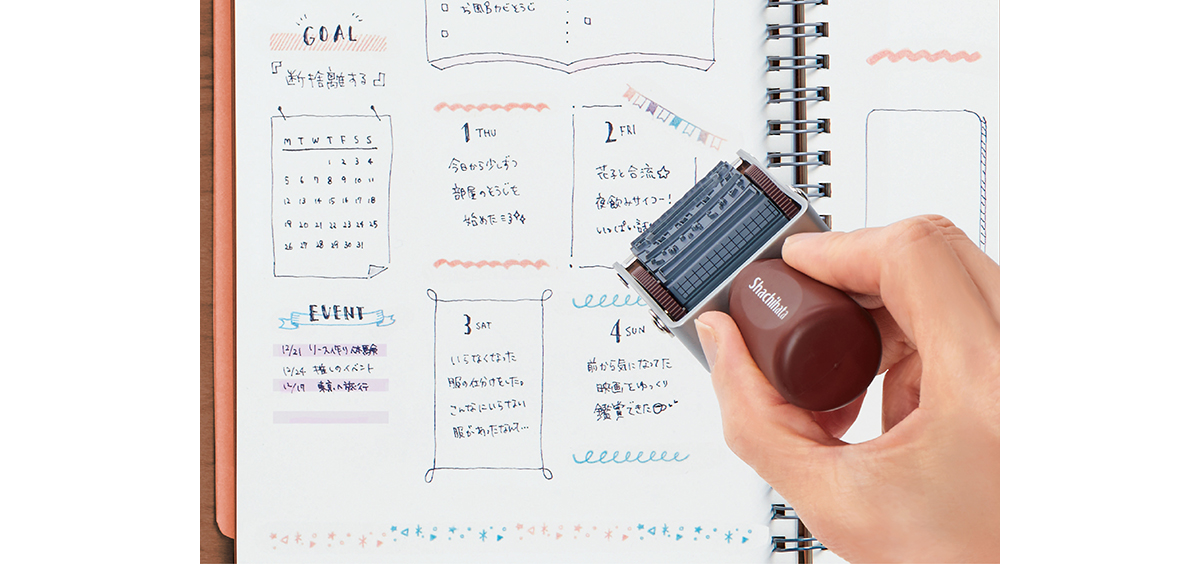 お風呂そうじ
GOAL
『断捨離する』
M T W T F S S
1 2 3 4
5 6 7 8 9 10 11
12 13 14 15 16 17 18
19 20 21 22 23 24 25
26 27 28 29 30 31
EVENT
12/21 リース作り体験
12/24 推しのイベント
12/27 東京へ旅行
1 THU
今日から少しずつ
部屋のそうじを
始めた
2 FRI
花子と合流☆
夜飲みサイコー!
いっぱい話
3 SAT
いらなくなった
服の仕分けをした。
こんなにいらない
服があったなんて…
4 SUN
前から気になってた
映画をゆっくり
鑑賞できた
Shachihata